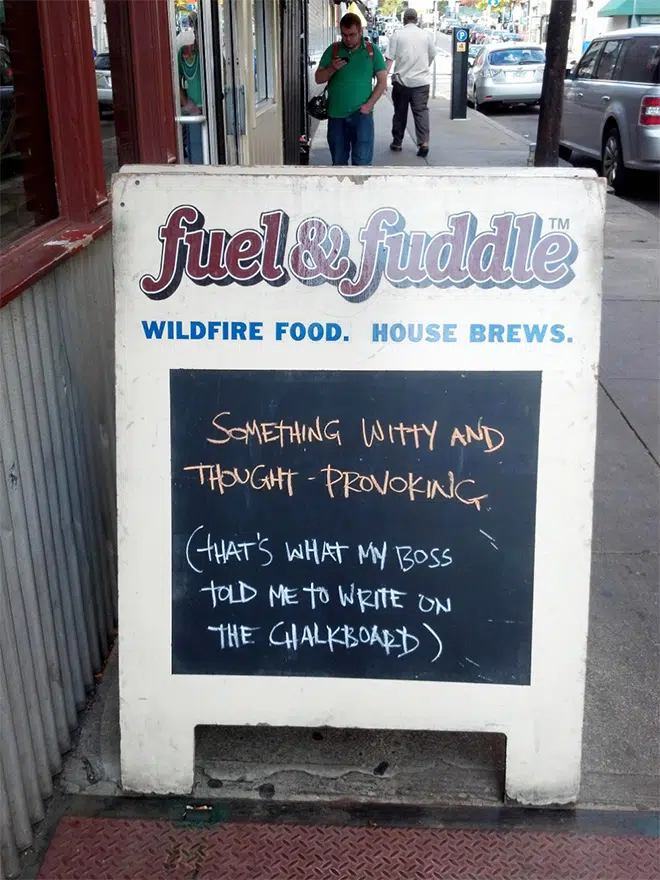 P
fuel & fuddle™
WILDFIRE FOOD. HOUSE BREWS.
SOMETHING WITTY AND
THOUGHT-PROVOKING
(THAT'S WHAT MY BOSS
TOLD ME TO WRITE ON
THE CHALKBOARD)